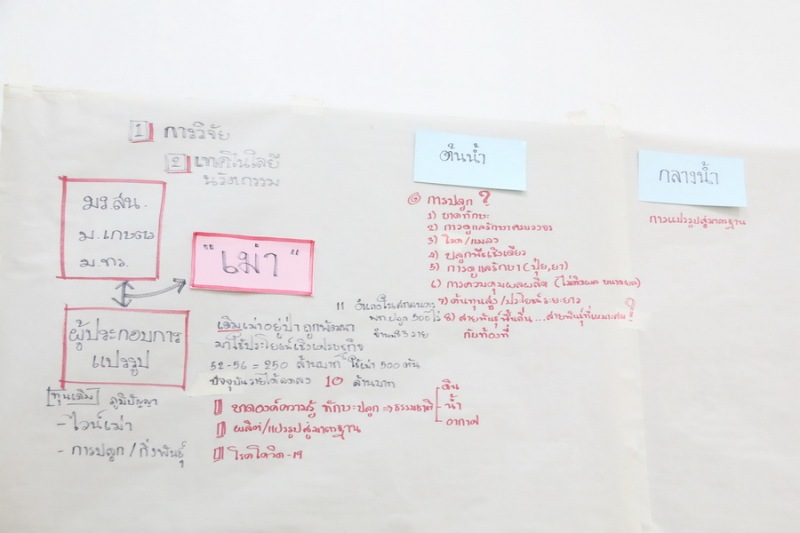 1 การวิจัย
2 เทคโนโลยี
นวัตกรรม
มร.สน.
ม.เกษตร
ม.ทร.
"เม่า"
ผู้ประกอบการ
แปรรูป
ทุนเดิม ภูมิปัญญา
- ไวน์เม่า
- การปลูก / กิ่งพันธุ์
11 อำเภอในสกลนคร
500 ไร่
จำนวน 3 ราย
เดิมเม่าอยู่ป่า ถูกพัฒนา
มาใช้ประโยชน์เชิงเศรษฐกิจ
52-56 = 250 ล้านบาท ใช้เม่า 500 ตัน
ปัจจุบันรายได้ลดลง 10 ล้านบาท
ขาดองค์ความรู้ ทักษะปลูก => ธรรมชาติ
ดิน
น้ำ
อากาศ
ผลิต/แปรรูปสู่มาตรฐาน
โรคโควิด-19
ต้นน้ำ
การปลูก ?
1) ขาดทักษะ
2) การดูแลรักษาครบวงจร
3) โรค/แมลง
4) ปลูกพืชเชิงเดี่ยว
5) การดูแลรักษา (ปุ๋ย,ยา)
6) การควบคุมผลผลิต
7) ต้นทุนสูง / ประโยชน์ระยะยาว
8) สายพันธุ์พื้นถิ่น... สายพันธุ์ที่เหมาะสม ?
กับท้องที่
กลางน้ำ
การแปรรูปสู่มาตรฐาน